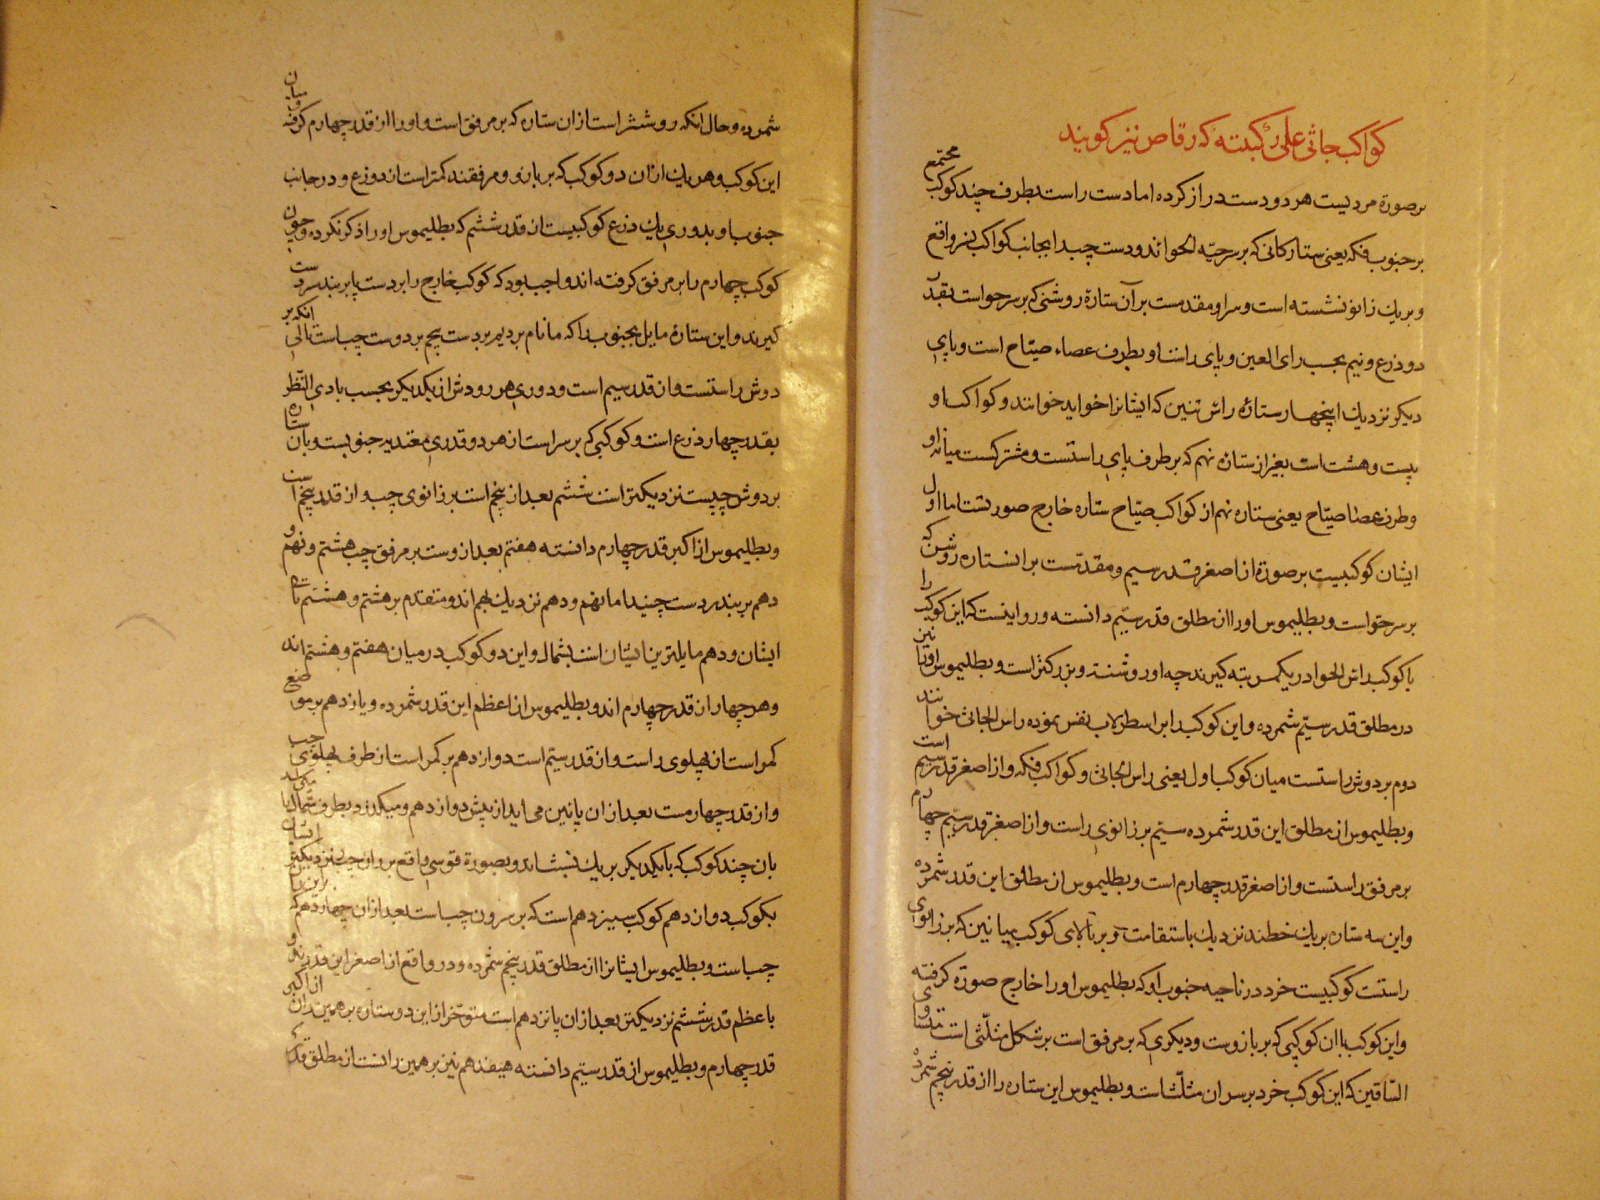 کواکب جاثی علی رکبته که رقاص نیز کویند
بر صورة مردیست هر دو دست دراز کرده اما دست راست بطرف چند کوکب مجتمع
بر جنوب فکه یعنی ستارکانی که بر سر حیّه الحوا اند و دست چپ بدا بجانب کواکب نسر واقع
و بر یك زانو نشسته است و سر او مقدمست بر آن ستارۀ روشنی که بر سر حواست بقدر
دو ذرع و نیم بحسب رای العین و پای راست او بطرف عصاء صیّاح است و پای
دیکر نزدیك بچهار ستارۀ راس تنین که ایشانرا عواید خوانند و کواکب او
بیست و هشت است بغیر از ستارۀ نهم که بر طرف پای راستست و مشترکست میانه او
و طرف عصا صیّاح یعنی ستاره نهم از کواکب صیّاح ستاره خارج صورتست اما اول
ایشان کوکبیست بر صورة از اصغر قدر سیم و مقدّمست بر انستاره روشن که
بر سر حواست و بطلیموس اورا از مطلق قدر سیّم دانسته و رو اینست که این کوکب را
با کوکب راس الحوا در یکمرتبه کیرند چه او روشنتر و بزرکتر است و بطلیموس اورا نیز
در مطلق قدر سیّم شمرده و این کوکب را بر اسطرلاب نقش نموده راس الجاثی خوانند
دوم بر دوش راستست میان کوکب اول یعنی راس الجاثی و کواکب فکه و از اصغر قدر سیم است
و بطلیموس از مطلق این قدر شمرده سیّم بر زانوی راست و از اصغر قدر سیّم چهارم
بر مرفق راستست و از اصغر قدر چهارم است و بطلیموس از مطلق این قدر شمرده
و این سه ستاره بر یك خطند نزدیك باستقامت و بر بالای کوکب میانین که بر زانوی
راستست کوکبیست خرد در ناحیه جنوب او که بطلیموس اورا خارج صورة کرفته
و این کوکب با ان کوکبی که بر بازوست و دیکری که بر مرفق است بر شکل مثلّثی است متساوی
السّاقین که این کوکب خرد بر سر ان مثلّث است و بطلیموس این ستاره را از قدر پنجم شمرده
شمرده و حال انکه روشنتر است از ان ستاره که بر مرفق است و اورا از قدر چهارم کرفته و میان
این کوکب و هر یك از ان دو کوکب که بر بازو و مرفقند کمتر است از دو ذرع و در جانب
جنوب او بدوری یك ذرع کوکبیست از قدر ششم که بطلیموس اورا ذکر نکرده و چون
کوکب چهارم را بر مرفق کرفته اند واجب بود که کوکب خارج را بر دست یا بر بند سردست
کیرند و این ستارۀ مایل بجنوب را که ما نام بردیم بر دست پنجم بر دوست چپ است تالی انکه بر
دوش راستست و از قدر سیم است و دوری هر دو دش از یکدیکر بحسب بادی النّظر
بقدر چهار ذرع است و کوکبی که بر سر است از هر دو قدری معتدبه جنوبیست و بان ستاره
بر دوش چپست نزدیکتر است ششم بعد از پنجم است بر زانوی چپ و از قدر پنجم است
و بطلیموس از اکبر قدر چهارم دانسته هفتم بعد از وست بر مرفق چپ هشتم و نهم و
دهم بر بند دست چپند اما نهم و دهم نزدیك بهم اند و متقدم بر هشتم و هشتم تالی
ایشان و دهم مایلترین ایشان است بشمال و این دو کوکب در میان هفتم و هشتم اند
و هر چهار از قدر چهارم اند و بطلیموس از اعظم این قدر شمرده و یازدهم بر موضع
کمر است از پهلوی راست و از قدر سیّم است دوازدهم بر کمر است از طرف پهلوی چپ
و از قدر چهارمست بعد از ان پائین می اید از پیش دوازدهم و میکذرد بطرف شمال تا میکند
بان چند کوکب که با یکدیکر بر یك نسبت اند و بصورة قوسی واقع بر ران چپ نزدیکتر ایشان
بکوکب دوازدهم کوکب سیزدهم است که بر سرون چپ است بعد از ان چهاردهم که بر ران
چپ است و بطلیموس ایشانرا از مطلق قدر پنجم شمرده و در واقع از اصغر این قدرند و
با عظم قدر ششم نزدیکتر بعد از ان پانزدهم است متوخّر از این دو ستاره بر همین ران از اکبر
قدر چهارم و بطلیموس از قدر سیّم دانسته هیفدهم نیز بر همین رانست از مطلق قدر